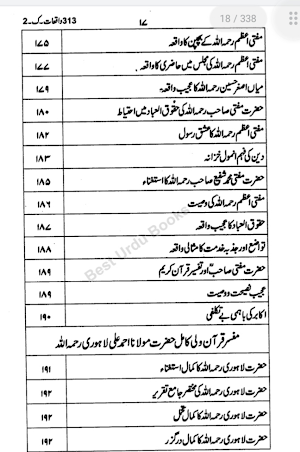 18 / 338
313 واقعات ک۔2
۱۷
مفتی اعظم رحمہ اللہ کے بچپن کا واقعہ ۱۷۵
مفتی اعظم رحمہ اللہ کی مجلس میں حاضری کا واقعہ ۱۷۷
میاں اصغر حسین رحمہ اللہ کا عجیب واقعہ ۱۷۹
حضرت مفتی صاحب رحمہ اللہ کی حقوق العباد میں احتیاط ۱۸۰
مفتی اعظم رحمہ اللہ کا عشق رسول ۱۸۲
دین کی فہم انمول خزانہ ۱۸۳
حضرت مفتی محمد شفیع صاحب رحمہ اللہ کا استغناء ۱۸۵
مفتی اعظم رحمہ اللہ کی وصیت ۱۸۶
حقوق العباد کا عجیب واقعہ ۱۸۷
تواضع اور جذبہ خدمت کا مثالی واقعہ ۱۸۸
حضرت مفتی صاحبؒ اور تفسیر قرآن کریم ۱۸۹
عجیب نصیحت و وصیت ۱۸۹
اکابر کی باہمی بے تکلفی ۱۹۰
مفسر قرآن ولی کامل حضرت مولانا احمد علی لاہوری رحمہ اللہ
حضرت لاہوری رحمہ اللہ کا کمال استغناء ۱۹۱
حضرت لاہوری رحمہ اللہ کی مختصر جامع تقریر ۱۹۲
حضرت لاہوری رحمہ اللہ کا کمال تحمل ۱۹۲
حضرت لاہوری رحمہ اللہ کا کمال درگزر ۱۹۲
Best Urdu Books